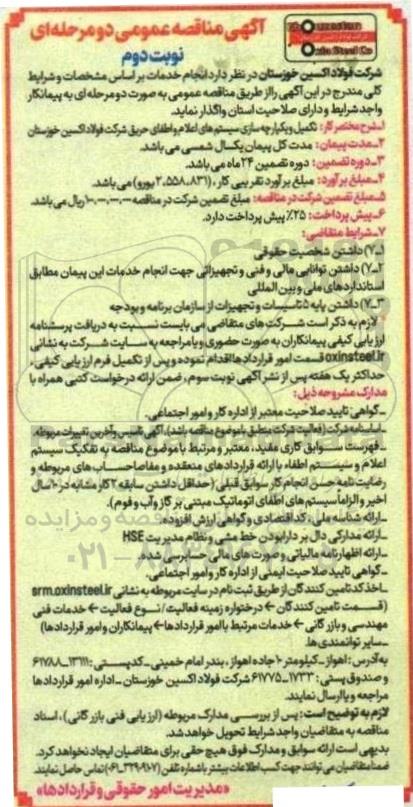 Khouzestan
Oxin Steel Co
آگهی مناقصه عمومی دو مرحله‌ای
نوبت دوم
شرکت فولاد اکسین خوزستان در نظر دارد انجام خدمات بر اساس مشخصات و شرایط
کلی مندرج در این آگهی را از طریق مناقصه عمومی به صورت دو مرحله ای به پیمانکار
واجد شرایط و دارای صلاحیت استان واگذار نماید.
۱ـ شرح مختصر کار: تکمیل و یکپارچه سازی سیستم های اعلام و اطفای حریق شرکت فولاد اکسین خوزستان
۲ـ مدت پیمان: مدت کل پیمان یکسال شمسی می باشد.
۳ـ دوره تضمین: دوره تضمین ۲۴ ماه می باشد.
۴ـ مبلغ برآورد: مبلغ برآورد تقریبی کار، (۲،۵۵۸،۸۳۱ یورو) می باشد.
۵ـ مبلغ تضمین شرکت در مناقصه: مبلغ تضمین شرکت در مناقصه ریال می باشد.
۶ـ پیش پرداخت: ۲۵٪ پیش پرداخت دارد.
۷ـ شرایط متقاضی:
۷-۱) داشتن شخصیت حقوقی
۷-۲) داشتن توانایی مالی و فنی و تجهیزاتی جهت انجام خدمات این پیمان مطابق
استانداردهای ملی و بین المللی
۷-۳) داشتن پایه ۵ تاسیسات و تجهیزات از سازمان برنامه و بودجه
لازم به ذکر است شرکت های متقاضی می بایست نسبت به دریافت پرسشنامه
ارزیابی کیفی پیمانکاران به صورت حضوری و یا مراجعه به سایت شرکت به نشانی
oxinsteel.ir قسمت امور قراردادها اقدام نموده و پس از تکمیل فرم ارزیابی کیفی،
حداکثر یک هفته پس از نشر آگهی نوبت سوم، ضمن ارائه درخواست کتبی همراه با
مدارک مشروحه ذیل:
ـ گواهی تایید صلاحیت معتبر از اداره کار و امور اجتماعی.
ـ اساسنامه شرکت (فعالیت شرکت منطبق با موضوع مناقصه باشد)، آگهی تاسیس و آخرین تغییرات مربوطه
ـ فهرست سوابق کاری مفید، معتبر و مرتبط با موضوع مناقصه به تفکیک سیستم
اعلام و سیستم اطفاء با ارائه قراردادهای منعقده و مفاصاحساب های مربوطه و
رضایت نامه حسن انجام کار سوابق قبلی (حداقل داشتن سابقه ۲ کار مشابه در ۱۰ سال
اخیر و الزاماً سیستم های اطفای اتوماتیک مبتنی بر گاز و آب و فوم).
ـ ارائه شناسه ملی، کد اقتصادی و گواهی ارزش افزوده.
ـ ارائه مدارکی دال بر دارا بودن خط مشی و نظام مدیریت HSE
ـ ارائه اظهارنامه مالیاتی و صورت های مالی حسابرسی شده.
ـ گواهی تایید صلاحیت ایمنی از اداره کار و امور اجتماعی.
ـ اخذ کد تامین کنندگان از طریق ثبت نام در سایت مربوطه به نشانی srm.oxinsteel.ir
(قسمت تامین کنندگان ← درختواره زمینه فعالیت / نوع فعالیت ← خدمات فنی
مهندسی و بازرگانی ← خدمات مرتبط با امور قراردادها ← پیمانکاران و امور قراردادها)
ـ سایر توانمندی ها.
به آدرس: اهواز ـ کیلومتر ۱۰ جاده اهواز، بندر امام خمینی ـ کدپستی: ۱۳۱۱۱-۶۱۷۸۸
و صندوق پستی: ۱۷۳۳-۶۱۷۷۵ شرکت فولاد اکسین خوزستان ـ اداره امور قراردادها
مراجعه و یا ارسال نمایند.
لازم به توضیح است: پس از بررسی مدارک مربوطه (ارزیابی فنی بازرگانی)، اسناد
مناقصه به متقاضیان واجد شرایط تحویل خواهد شد.
بدیهی است ارائه سوابق و مدارک فوق هیچ حقی برای متقاضیان ایجاد نخواهد کرد.
ضمناً متقاضیان می توانند جهت کسب اطلاعات بیشتر با شماره تلفن (۳۲۹۰۹۱۰۷-۰۶۱) تماس حاصل نمایند.
«مدیریت امور حقوقی و قراردادها»